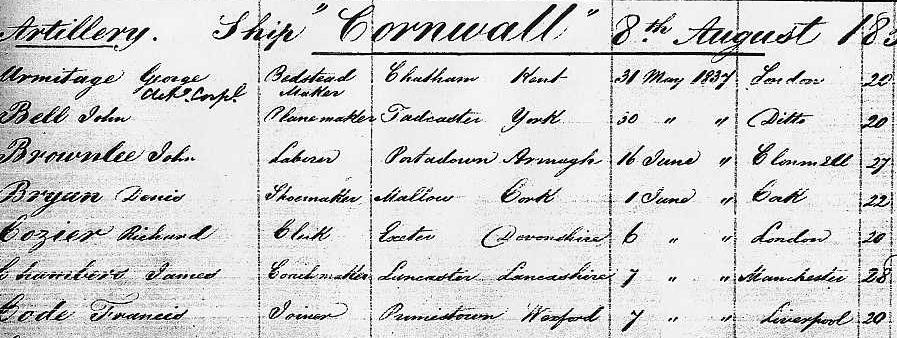 Artillery. Ship "Cornwall" 8th August 183
Armitage George Bedstead Chatham Kent 31 May 1837 London 22
Actg. Corpl. Maker
Bell John Plane maker Tadcaster York 30 " " Ditto 20
Brownlee John Laborer Portadown Armagh 16 June " Clonmell 27
Bryan Denis Shoemaker Mallow Cork 1 June " Cork 22
Cozier Richard Clerk Exeter Devonshire 6 " " London 20
Chambers James Coachmaker Lancaster Lancashire 7 " " Manchester 28
Code Francis Joiner Wexford 7 " " Liverpool 20